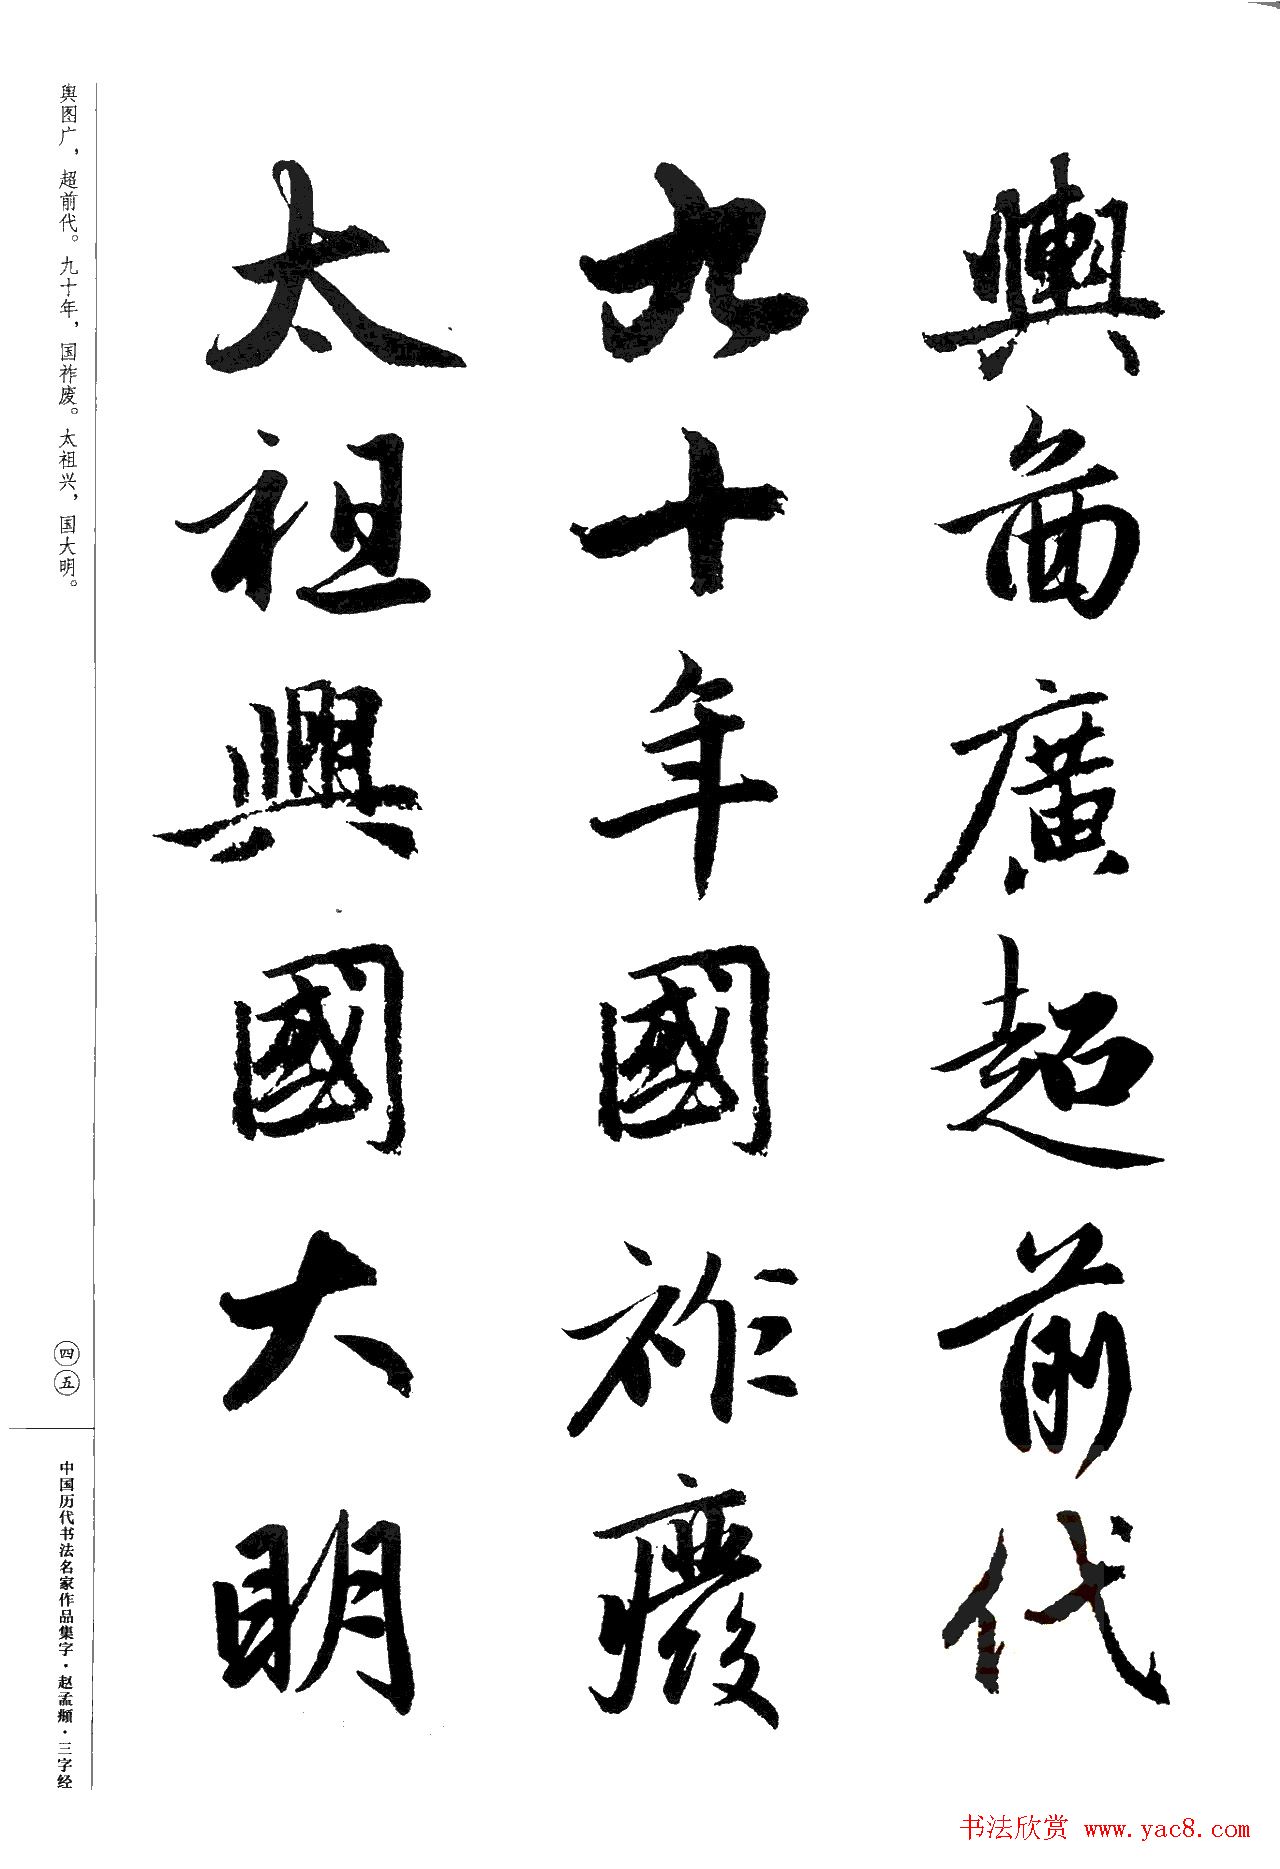 輿圖廣超前代
九十年國祚廢
太祖興國大明
舆图广，超前代。九十年，国祚废。太祖兴，国大明。
四五
中国历代书法名家作品集字·赵孟頫·三字经
书法欣赏 www.yac8.com